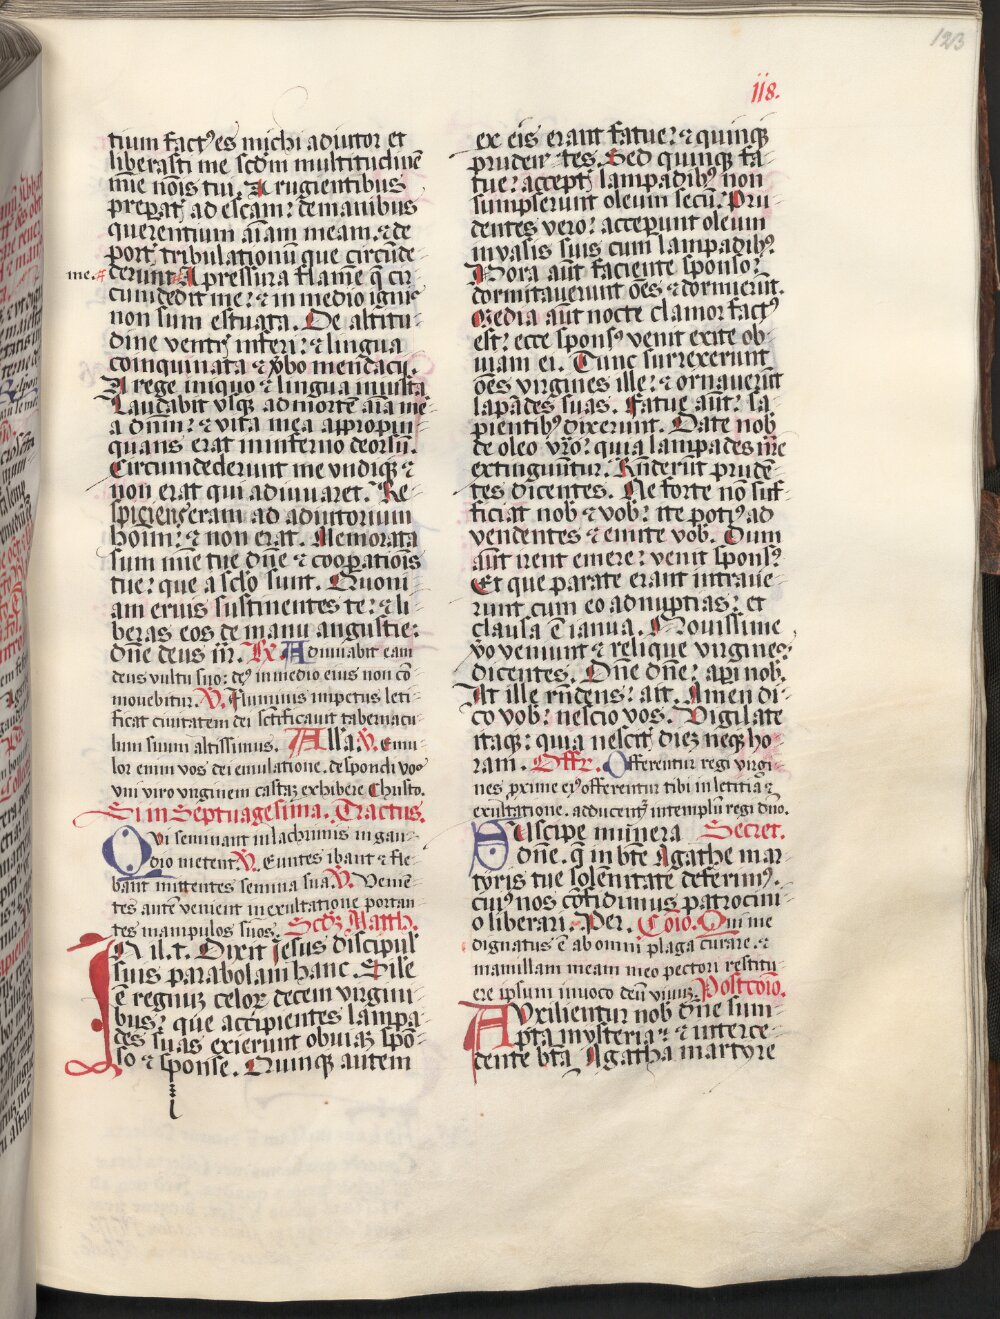 123
118.
tium fact᷒ es michi adiutor et
liberasti me scdm multitudinē
mīe nōis tui. A rugientibus
preparat᷒ ad escam: de manibus
querentium aīam meam. ⁊ de
port᷒ tribulationū que circūde
me. derunt A pressura flamē q̄ cir
cumdedit me: ⁊ in medio ignis
non sum estuata. De altitu
dine ventris inferi: ⁊ lingua
coinquinata ⁊ v̄bo mendacii.
A rege iniquo ⁊ lingua iniusta
Laudabit vsq; ad mortē aīa me
a dnm: ⁊ vita mea appropin
quans erat in inferno deorsū.
Circumdederunt me vndiq; ⁊
non erat qui adiuuaret. Re
spiciens eram ad adiutorium
hoīm: ⁊ non erat. Memorata
sum mīe tue dn̄e ⁊ cooperatiois
tue: que a sclo sunt. Quoni
am eruis sustinentes te: ⁊ li
beras eos de manu angustie:
dn̄e deus nr̄. Rx. Adiuuabit eam
deus vultu suo: de᷒ in medio eius non cō
mouebitur. V. Fluminis impetus leti
ficat ciuitatem dei sctificauit tabernacu
lum suum altissimus. Alla. V. Emu
lor enim vos dei emulatione. despondi vos
vni viro virginem castā exhibere Christo.
Si in Septuagesima. Tractus.
Qui seminant in lachrimis in gau
dio metent V. Euntes ibant ⁊ fle
bant mittentes semina sua. V. Venien
tes autē venient in exultatione portan
tes manipulos suos. Scdz Matth.
In il. t. Dixit Jesus discipulis
suis parabolam hanc. Sile
ē regnuz celor decem virgini
bus: que accipientes lampa
des suas exierunt obuiaz spō
so ⁊ sponse. Quinq; autem
ex eis erant fatue: ⁊ quinq;
pruden tes. Sed quinq; fa
tue: acceptis lampadib᷒ non
sumpserunt oleum secū. Pru
dentes vero: acceperunt oleum
in vasis suis cum lampadib᷒
Mora aūt faciente sponso:
dormitauerunt oēs ⁊ dormierūt.
Media aūt nocte clamor fact᷒
est: ecce spons᷒ venit exite ob
uiam ei. Tunc surrexerunt
oēs virgines ille: ⁊ ornauerūt
lāpades suas. Fatue aūt: sa
pientib᷒ dixerunt. Date nob
de oleo vr̄o: quia lampades nr̄e
extinguntur. Rn̄derūt prudē
tes dicentes. Ne forte nō suf
ficiat nob ⁊ vob: ite poti᷒ ad
vendentes ⁊ emite vob. Dum
aūt irent emere: venit spons᷒
Et que parate erant intraue
runt cum eo ad nuptias: et
clausa ē ianua. Nouissime
v̄o veniunt ⁊ relique virgines
dicentes. Dn̄e dn̄e: aperi nob.
At ille rn̄dens: ait. Amen di
co vob: nescio vos. Vigilate
itaq;: quia nescitis diez neq; ho
ram. Offr. Offerentur regi virgi
nes prime ei᷒ offerentur tibi in letitia ⁊
exultatione. adducent᷒ in templū regi dno.
Suscipe munera Secret.
dn̄e. q̄ in bt̄e Agathe mar
tyris tue solenitate deferim᷒.
cui᷒ nos cōfidimus patrocini
o liberari. Per. Coīo. Qui me
dignatus ē ab omni plaga curare. ⁊
mamillam meam meo pectori restitu
ere ipsum inuoco deū viuuz. Postcoīo.
Auxilientur nob dn̄e sum
pta mysteria: ⁊ interce
dente bt̄a Agatha martyre